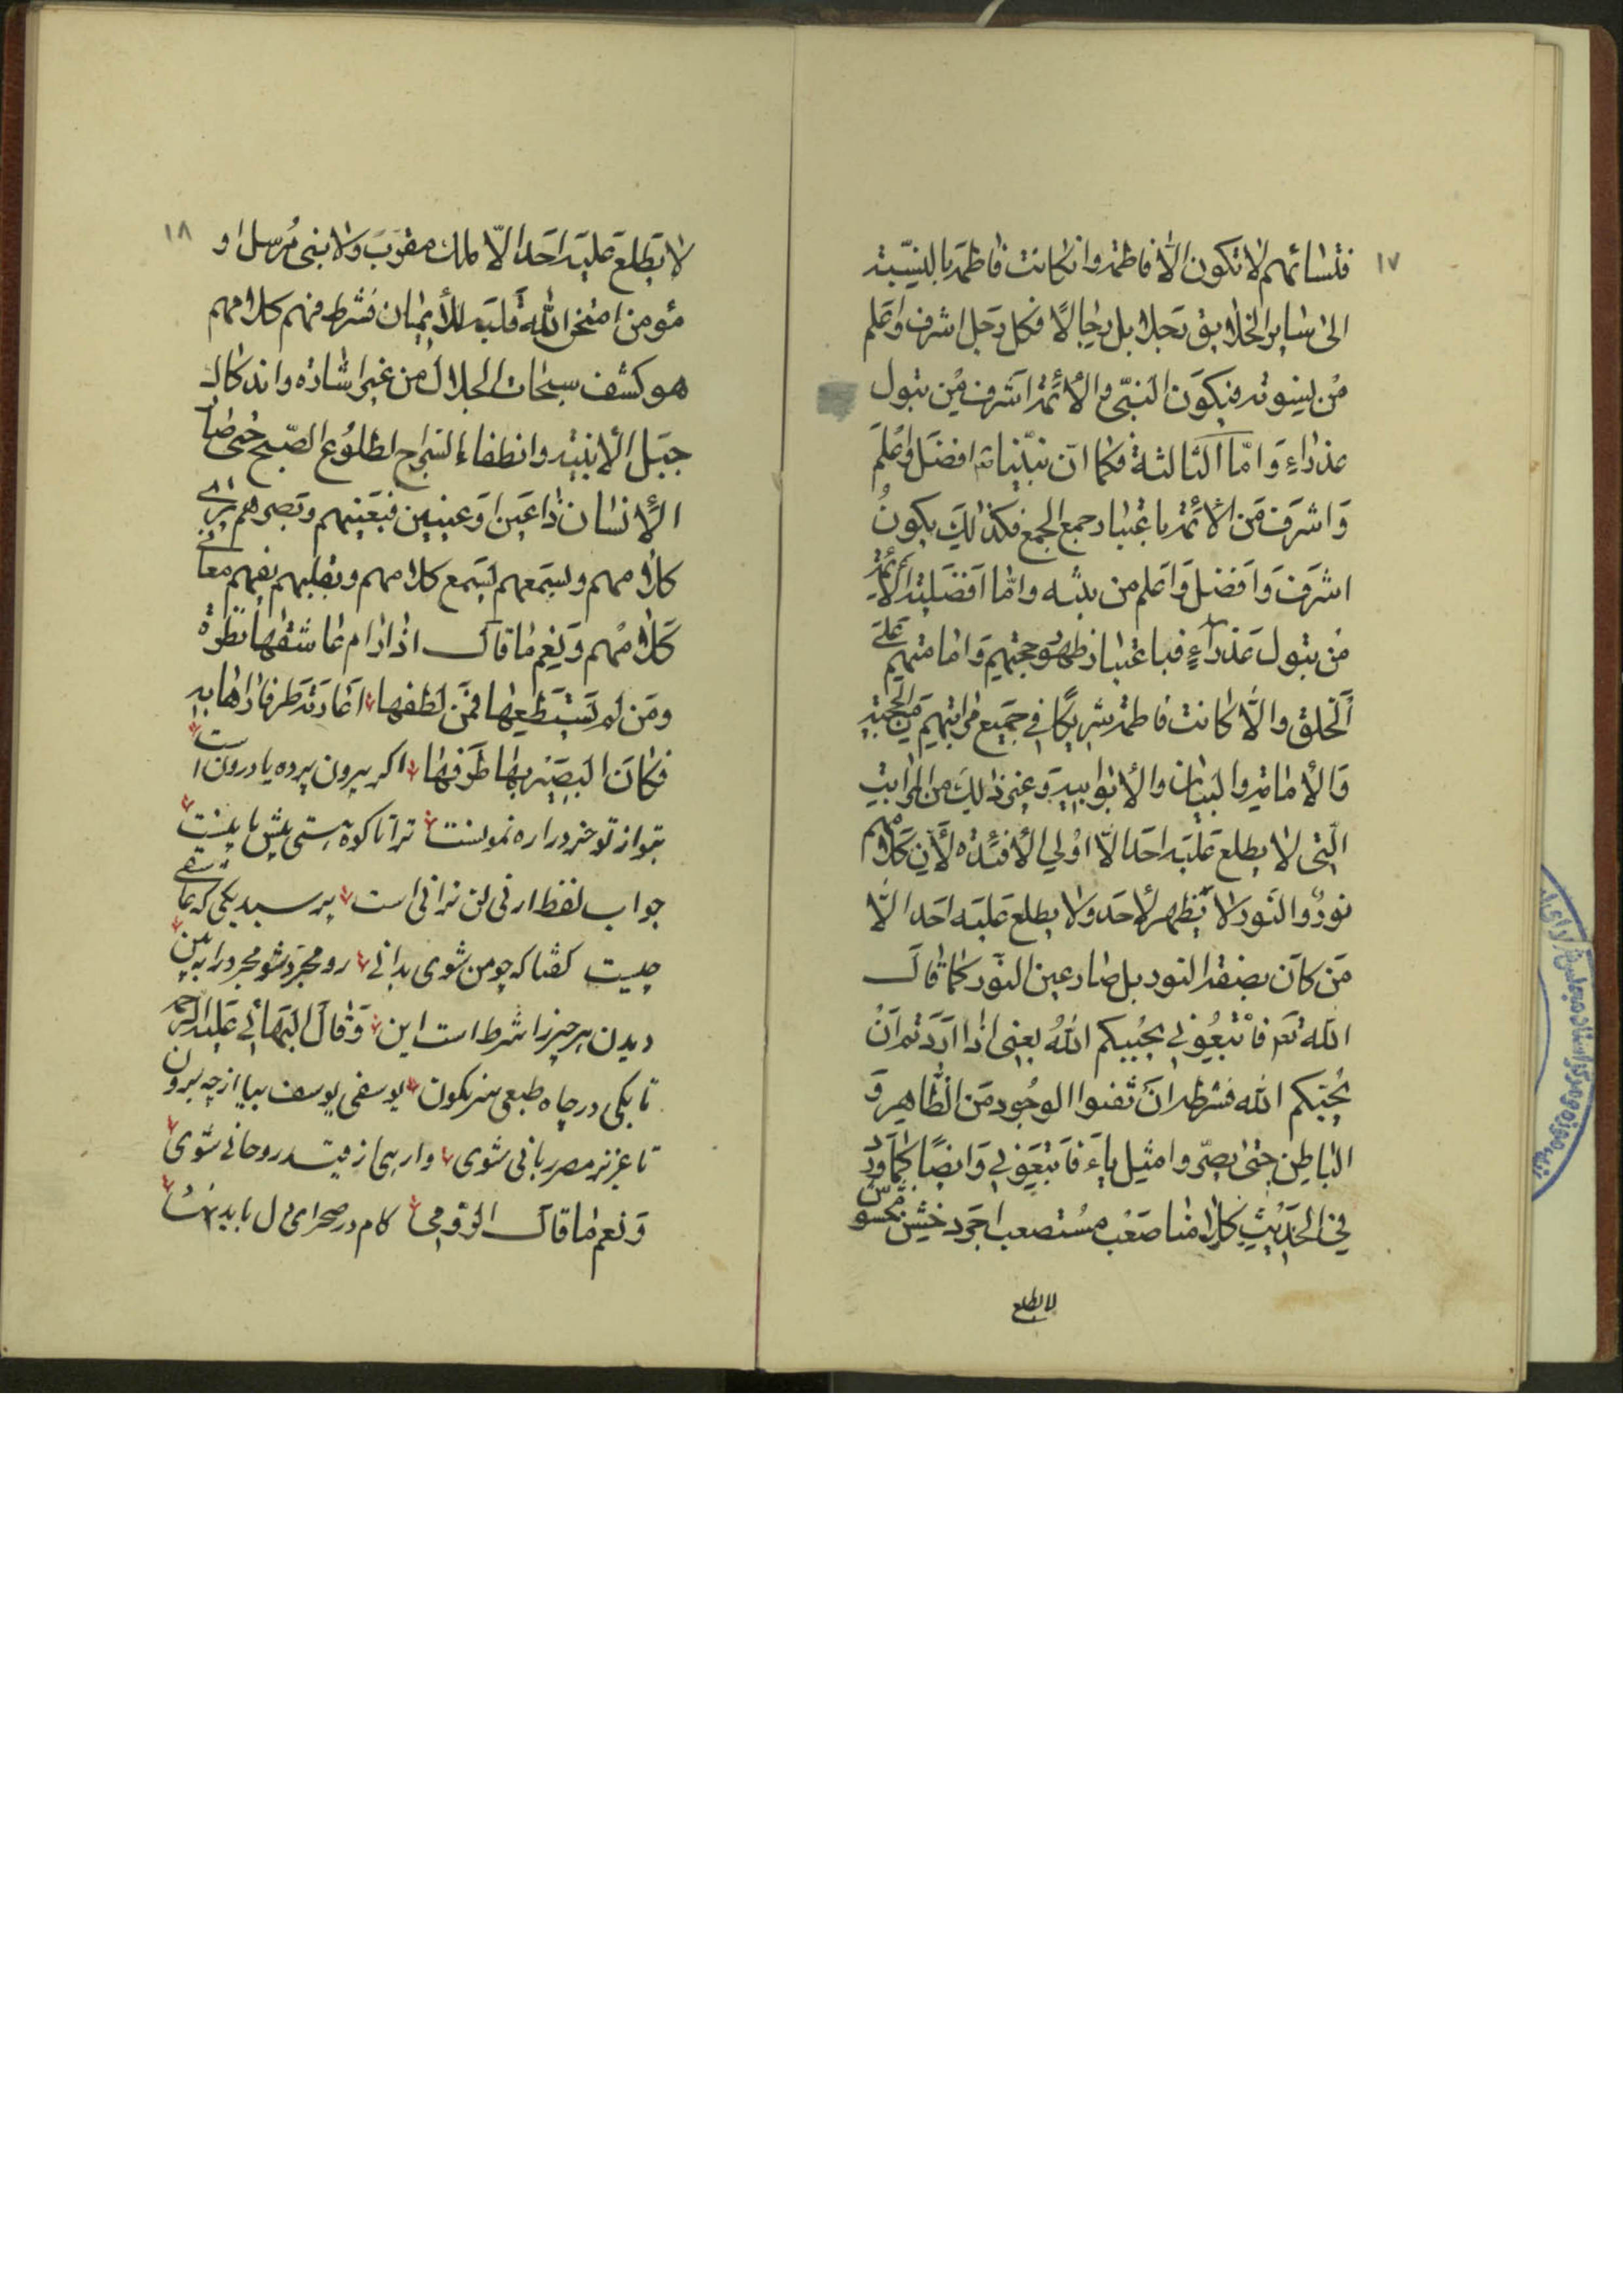 ١٧
فنسائهم لا تكون الّا فاطمة وان كانت فاطمة بالنسبة
الى ساير الخلايق رجلا بل رجالًا فكل رجل اشرف واعلم
من نسوته فيكون النبّي و الأئمة اشرف من بتول
عذراء وَ امّا الثالثة فكما انّ نبيّنا افضل واعلم
وَ اشرف من الأئمة باعتبار جمع الجمع فكذالك يكون
اشرف وَ افضل وَ اعلم من بنته وامّا افضلية الأئمة
من بتول عذراءٍ فباعتبار ظهور حجتهم وَ امامتهم على
الخلق والّا كانت فاطمة شريكًا في جميع مراتبهم من الحجية
وَ الأمامة والبيان والأبوابية وغير ذالك من المراتب
الّتى لا يطلع عليه احدا الّا اولي الأفئدة لأن كلامهم
نورٌ والنور لا يظهر لأحد ولا يطلع عليه احدا الّا
من كان بصفة النور بل صار عين النّور كما قال
الله تعا فاتبعوني يحببكم اللهُ يعنى اذا اردتم ان
يحببكم الله فشرطه ان تفنوا الوجود من الظاهر و
الباطن حتى يصير وا مثل ياء فاتبعوني وَ ايضًا كما ورد
في الحديث كلامنا صعب مستصعب اجرد خشن مخشوش
لا يطلع
١٨
لا يطلع عليه احدا الّا ملك مقرب ولا نبى مُرسل او
مؤمن امتحن الله قلبه للأيمان فشرط فهم كلامهم
هو كشف سبحات الجلال من غير اشاره واندكاك
جبل الأنيّة وانطفاء السّراج لطلوع الصّبح حتى صار
الأنسان ذا عين او عينين فبعينهم وبصرهم يرى
كلامهم وبسمعهم يسمع كلامهم وبقلبهم يفهم معانى
كلامهم وَ نِعم ما قال اذا رام عاشقها نظرة
ومن لم يستطعها فمن لطفها اعارته طرفا راها به
فكان البصير بها طرفها اكر بيرون پرده يا درون است
بتو از تو خود را ره نمونست ترا تا كوه هستى پيش باقيست
جواب لفظ ارنى لن ترانى است پرسيد يكى كه عاشقى
چيست كفتا كه چو من شوى بدانى رو مجرّد شو مجرد را ببين
ديدن هر چيز را شرط است اين وَ قال البهائي عليه الرحمة
تا بكى در چاه طبعى سرنكون يوسفى يوسف بيا از چه برون
تا عزيز مصر ربانى شوى وا رهى از قيد روحانى شوى
وَ نعم ما قال الرومى كام در صحراى دل بايد